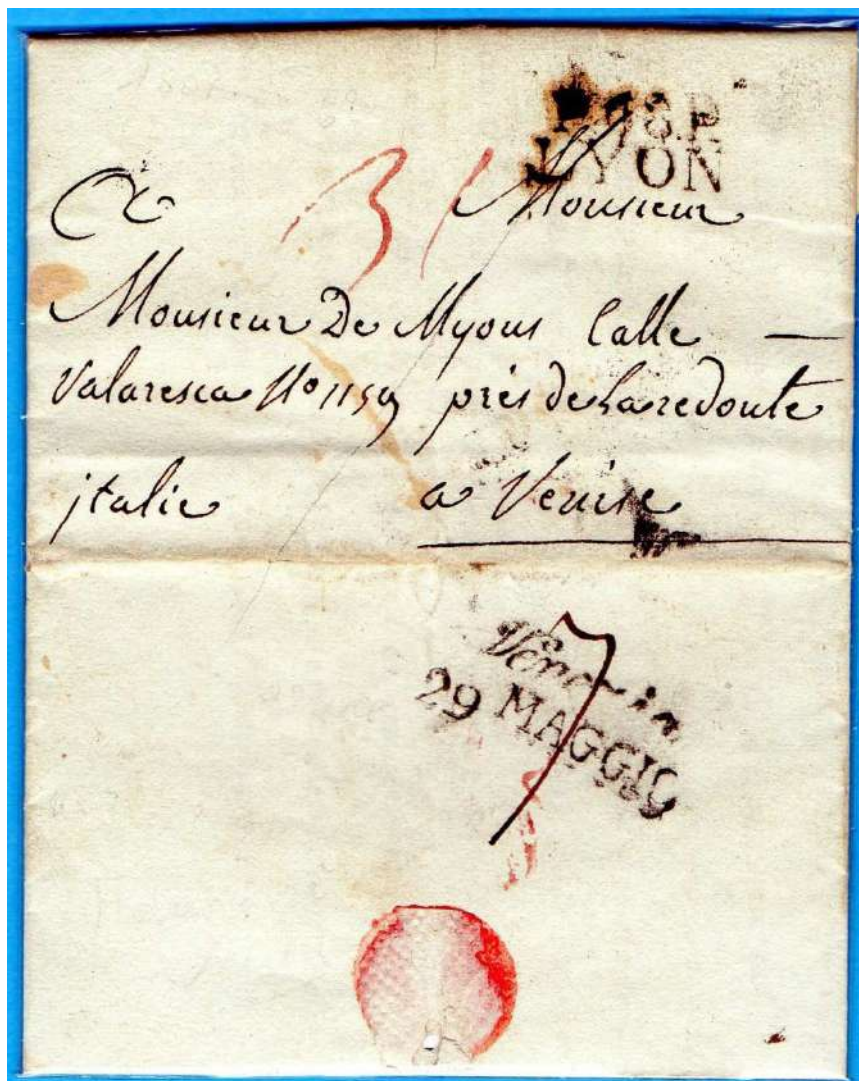 P.68.P.
LYON
A Monsieur
31
Monsieur De Myons Calle —
Valaresca N° 1159 près de la redoute
italie a Venise
Venezia
29 MAGGIO
7